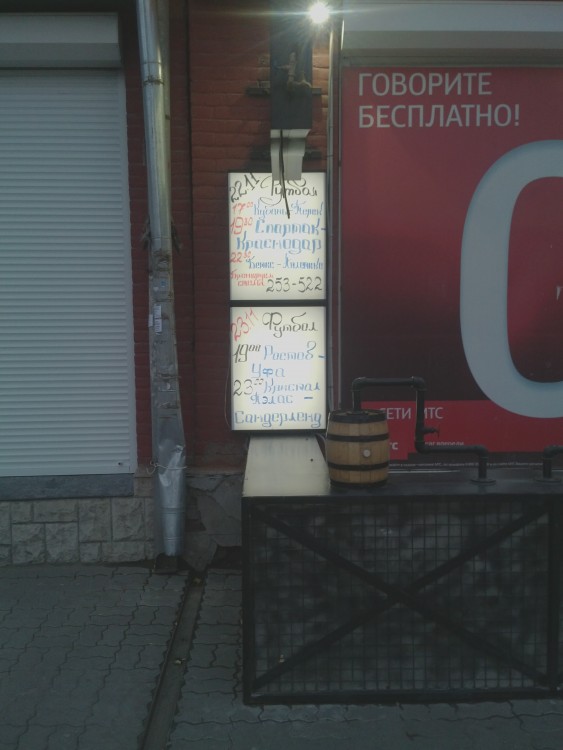 ГОВОРИТЕ
БЕСПЛАТНО!
22 11 Футбол
17 00 Кубань-Терек
19 30 Спартак-
Краснодар
22 45
253-522
23 11 Футбол
19 00 Ростов-
Уфа
23 00 Кристал
Пэлас-
Сандерленд
СЕТИ МТС